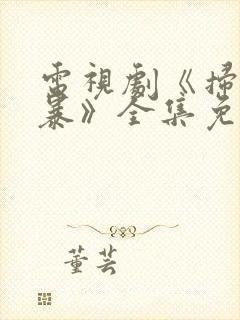 電視劇《掃
暴》全集免
董芸